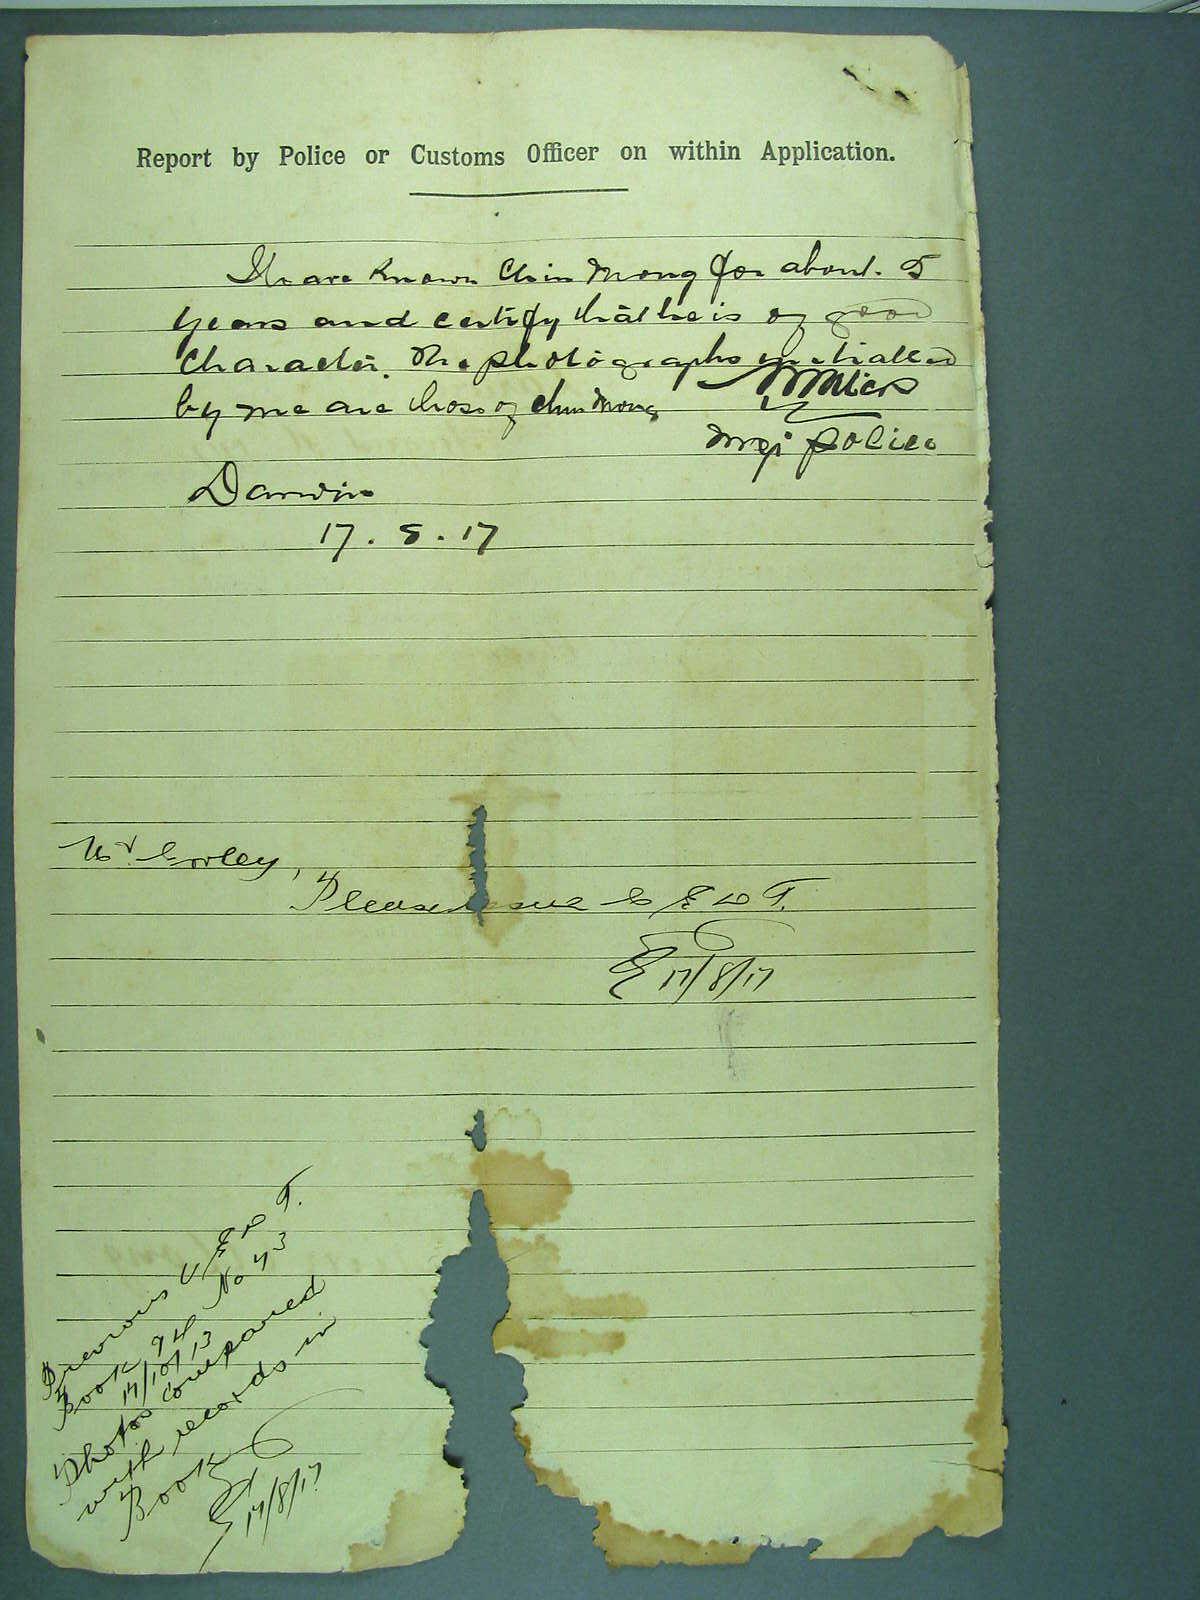 Report by Police or Customs Officer on within Application.
I have known Chin Mong for about 5
years and certify that he is of good
character. The photographs initialled
by me are those of Chin Mong
Insp Police
Darwin
17. 8. 17
Mr
Please issue C E D T.
17/8/17
Previous C E D T.
Book 94 No 43
17/10/13
Photos compared
with records in
Book
17/8/17